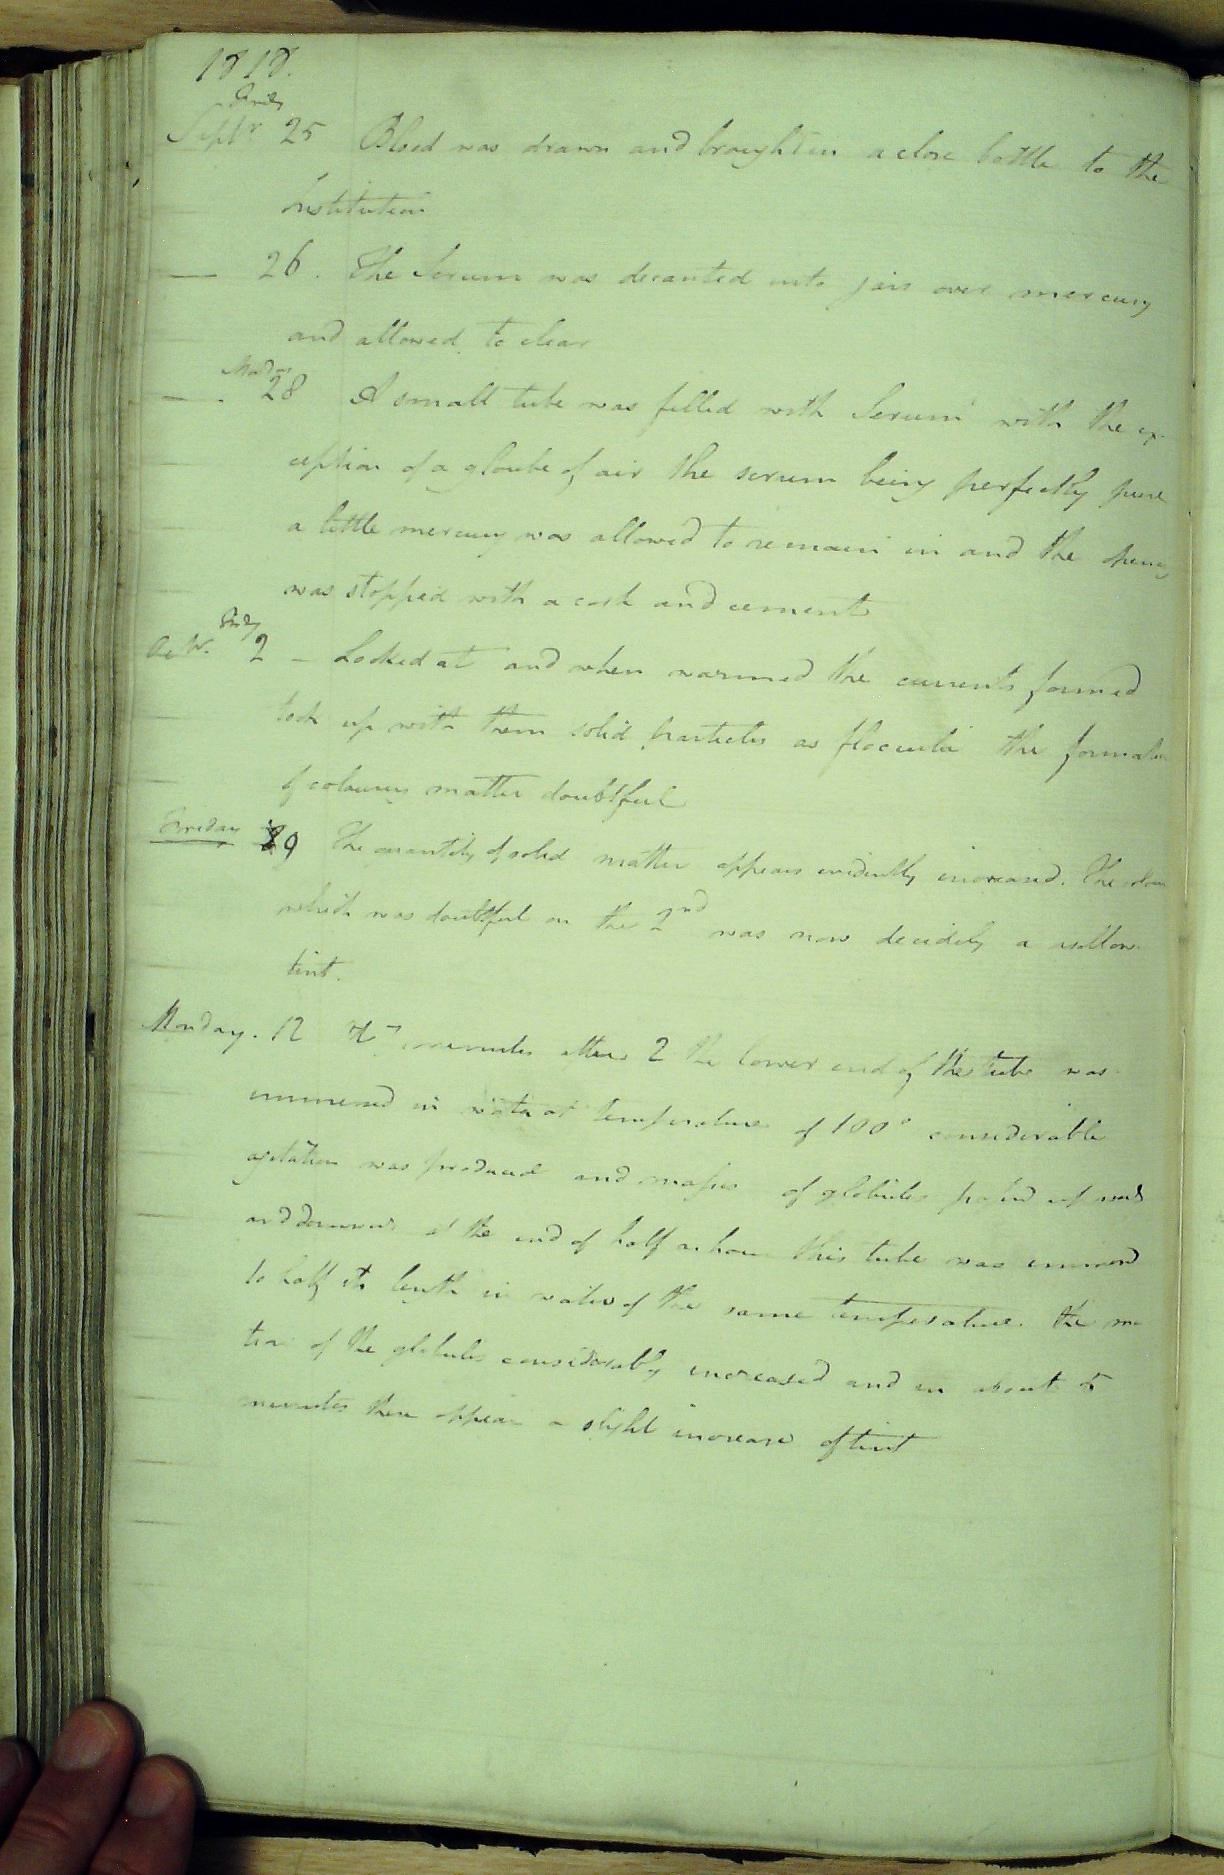 1818.
Friday
Septr 25 Blood was drawn and brought in a close bottle to the
Institution
— 26. The Serum was decanted into jars over mercury
and allowed to clear
Monday
— . 28 A small tube was filled with Serum with the ex-
ception of a gloube of air the serum being perfectly pure
a little mercury was allowed to remain in and the opening
was stopped with a cork and cement
Friday
Oct. 2 – Looked at and when warmed the currents formed
took up with them solid particles as flocculi the formation
of colouring matter doubtful
Friday 9 The quantity of solid matter appears evidently increased. The colour
which was doubtful on the 2nd was now decidely a yellow
tint.
Monday. 12 minutes after 2 the lower end of the tube was
immersed in water at temperature of 100° considerable
agitation was produced and masses of globules upwards
and downwards at the end of half an hour this tube was immersed
to half its length in water of the same temperature. the mo
tion of the globules considerably increased and in about 5
minutes there appear a slight increase of tint